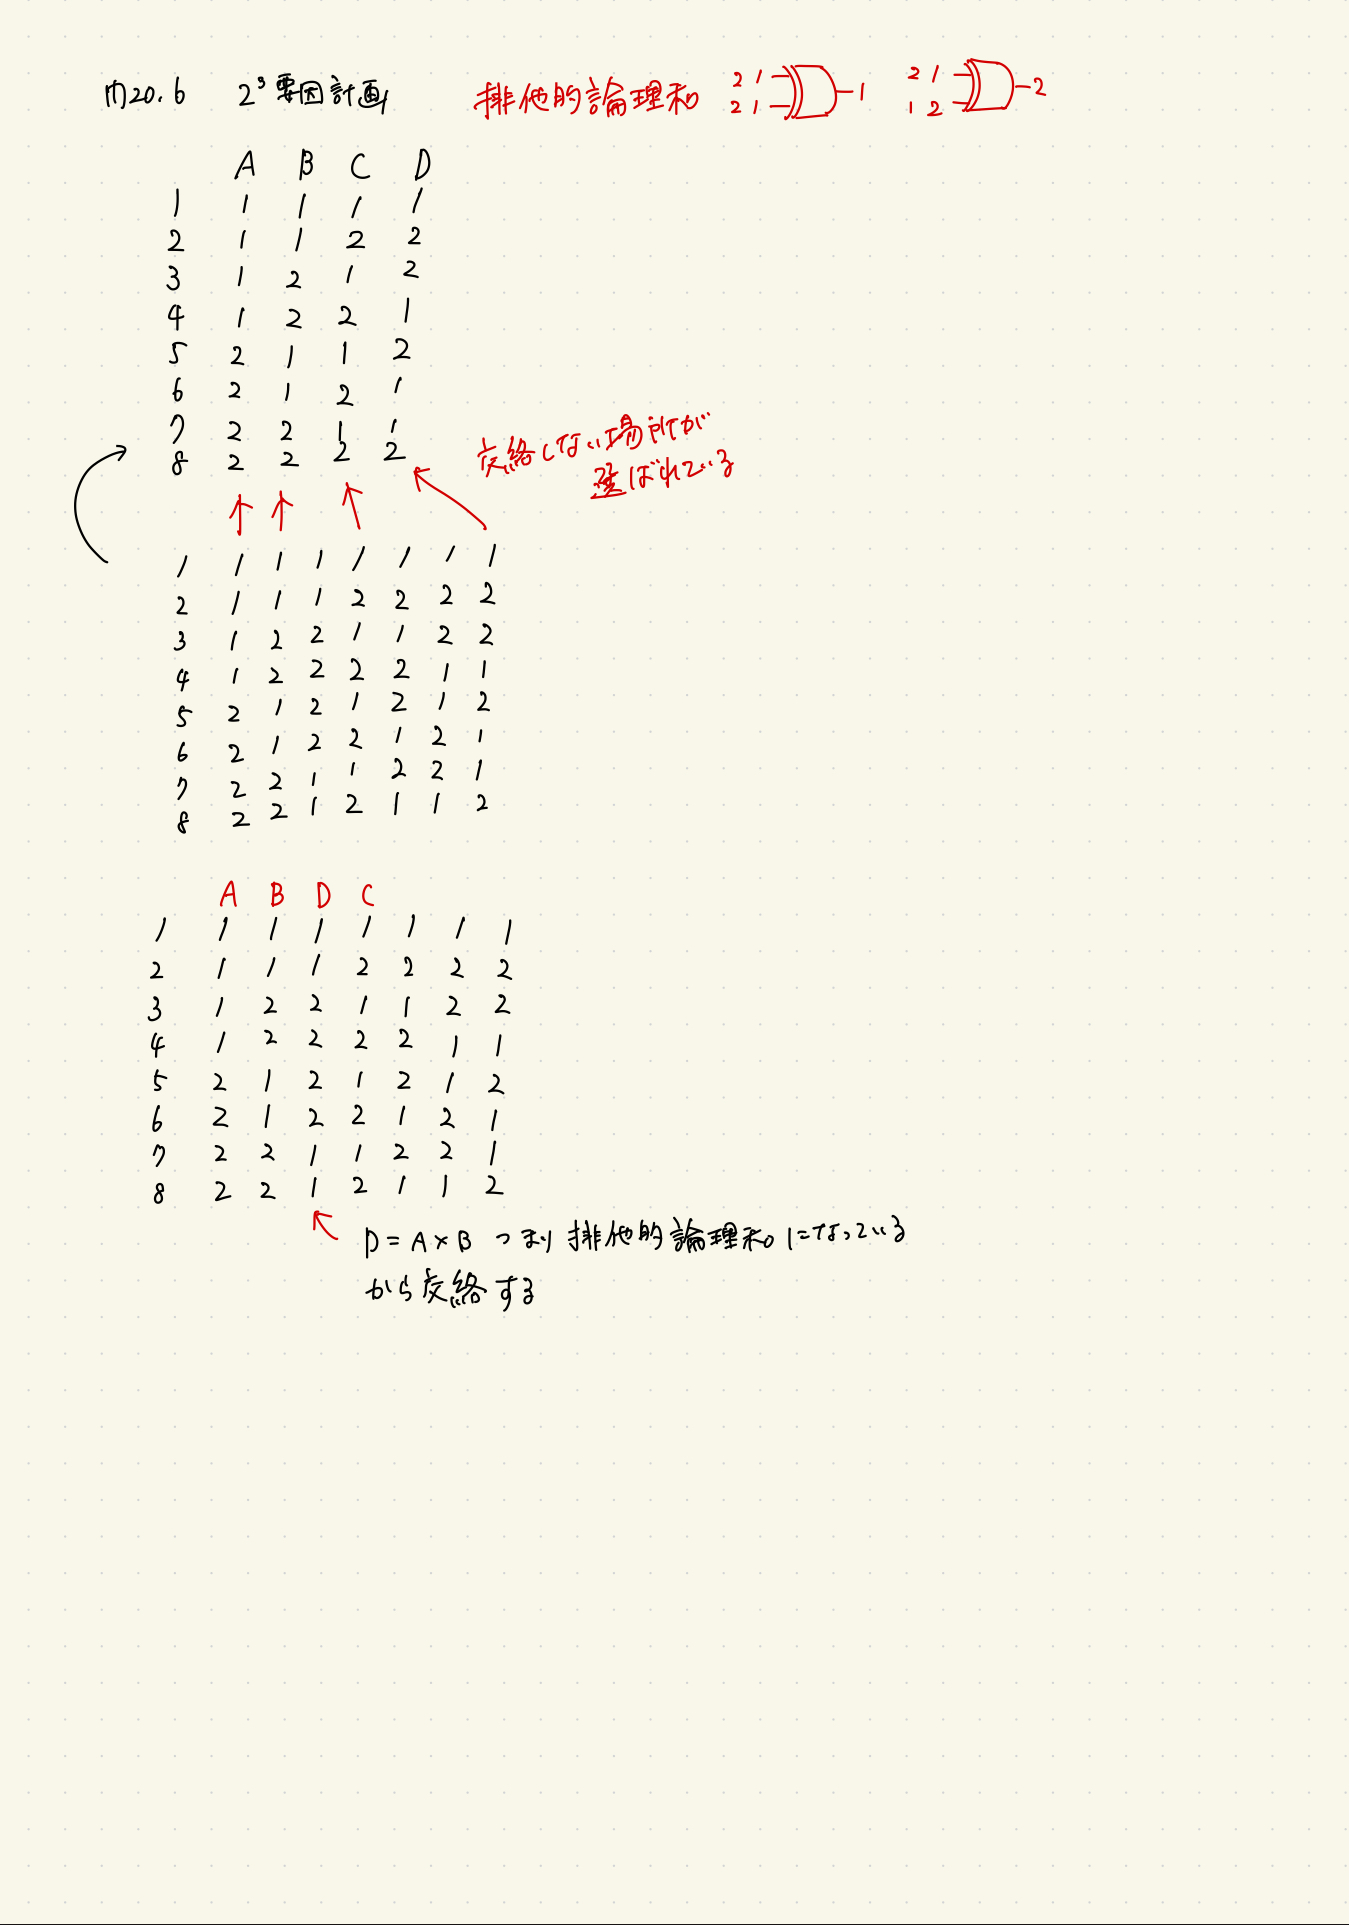 問20.6 2³要因計画 排他的論理和 2 1 2 1 1 2 1 1 2 2
A B C D
1 1 1 1 1
2 1 1 2 2
3 1 2 1 2
4 1 2 2 1
5 2 1 1 2
6 2 1 2 1
7 2 2 1 1
8 2 2 2 2
交絡しない場所が
選ばれている
1 1 1 1 1 1 1 1
2 1 1 1 2 2 2 2
3 1 2 2 1 1 2 2
4 1 2 2 2 2 1 1
5 2 1 2 1 2 1 2
6 2 1 2 2 1 2 1
7 2 2 1 1 2 2 1
8 2 2 1 2 1 1 2
A B D C
1 1 1 1 1 1 1 1
2 1 1 1 2 2 2 2
3 1 2 2 1 1 2 2
4 1 2 2 2 2 1 1
5 2 1 2 1 2 1 2
6 2 1 2 2 1 2 1
7 2 2 1 1 2 2 1
8 2 2 1 2 1 1 2
D = A × B つまり 排他的論理和になっている
から交絡する